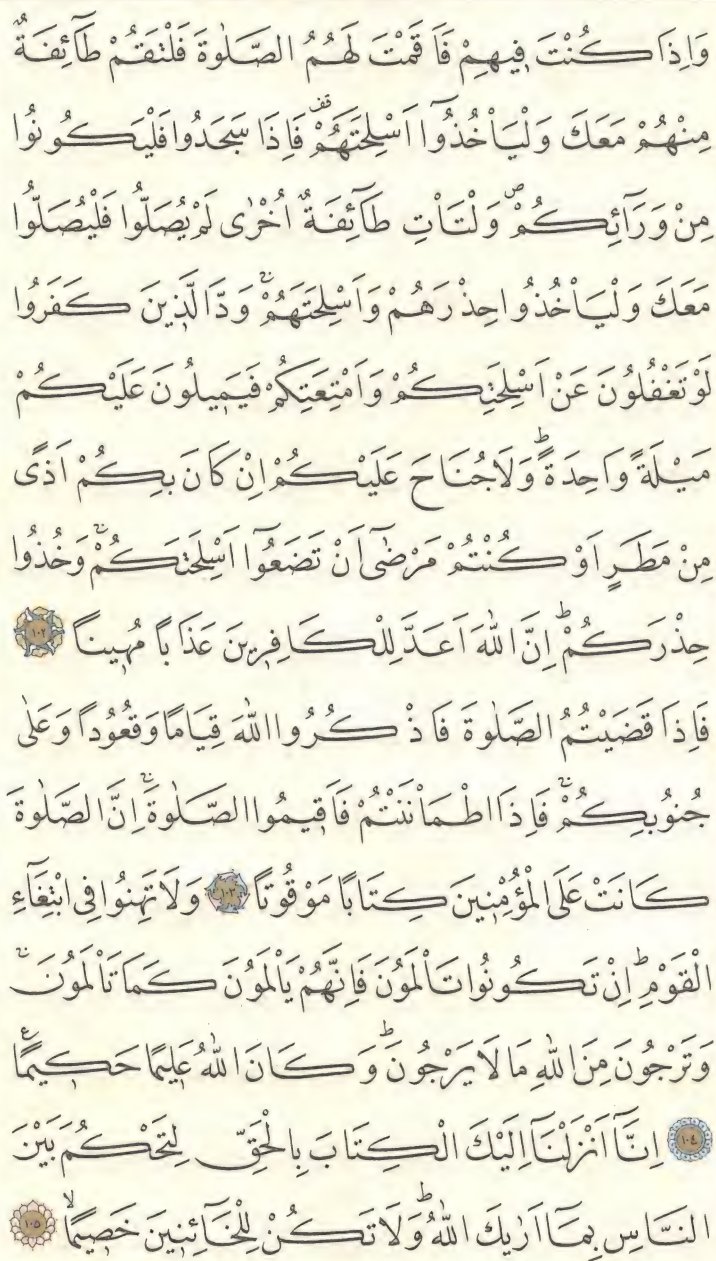 وَاِذَا كُنْتَ فِيهِمْ فَاَقَمْتَ لَهُمُ الصَّلٰوةَ فَلْتَقُمْ طَٓائِفَةٌ
مِنْهُمْ مَعَكَ وَلْيَأْخُذُٓوا اَسْلِحَتَهُمْ۠ فَاِذَا سَجَدُوا فَلْيَكُونُوا
مِنْ وَرَٓائِكُمْۖ وَلْتَأْتِ طَٓائِفَةٌ اُخْرٰى لَمْ يُصَلُّوا فَلْيُصَلُّوا
مَعَكَ وَلْيَأْخُذُوا حِذْرَهُمْ وَاَسْلِحَتَهُمْۚ وَدَّ الَّذِينَ كَفَرُوا
لَوْ تَغْفُلُونَ عَنْ اَسْلِحَتِكُمْ وَاَمْتِعَتِكُمْ فَيَمِيلُونَ عَلَيْكُمْ
مَيْلَةً وَاحِدَةًۜ وَلَا جُنَاحَ عَلَيْكُمْ اِنْ كَانَ بِكُمْ اَذًى
مِنْ مَطَرٍ اَوْ كُنْتُمْ مَرْضٰٓى اَنْ تَضَعُٓوا اَسْلِحَتَكُمْۚ وَخُذُوا
حِذْرَكُمْۜ اِنَّ اللّٰهَ اَعَدَّ لِلْكَافِرِينَ عَذَاباً مُهِيناً ﴿١٠٢﴾
فَاِذَا قَضَيْتُمُ الصَّلٰوةَ فَاذْكُرُوا اللّٰهَ قِيَاماً وَقُعُوداً وَعَلٰى
جُنُوبِكُمْۚ فَاِذَا اطْمَأْنَنْتُمْ فَاَقِيمُوا الصَّلٰوةَۚ اِنَّ الصَّلٰوةَ
كَانَتْ عَلَى الْمُؤْمِنِينَ كِتَاباً مَوْقُوتاً ﴿١٠٣﴾ وَلَا تَهِنُوا فِي ابْتِغَٓاءِ
الْقَوْمِۜ اِنْ تَكُونُوا تَأْلَمُونَ فَاِنَّهُمْ يَأْلَمُونَ كَمَا تَأْلَمُونَۚ
وَتَرْجُونَ مِنَ اللّٰهِ مَا لَا يَرْجُونَۜ وَكَانَ اللّٰهُ عَلِيماً حَكِيماًࣖ
﴿١٠٤﴾ اِنَّٓا اَنْزَلْنَٓا اِلَيْكَ الْكِتَابَ بِالْحَقِّ لِتَحْكُمَ بَيْنَ
النَّاسِ بِمَٓا اَرٰيكَ اللّٰهُۜ وَلَا تَكُنْ لِلْخَٓائِنِينَ خَصِيماًۙ ﴿١٠٥﴾